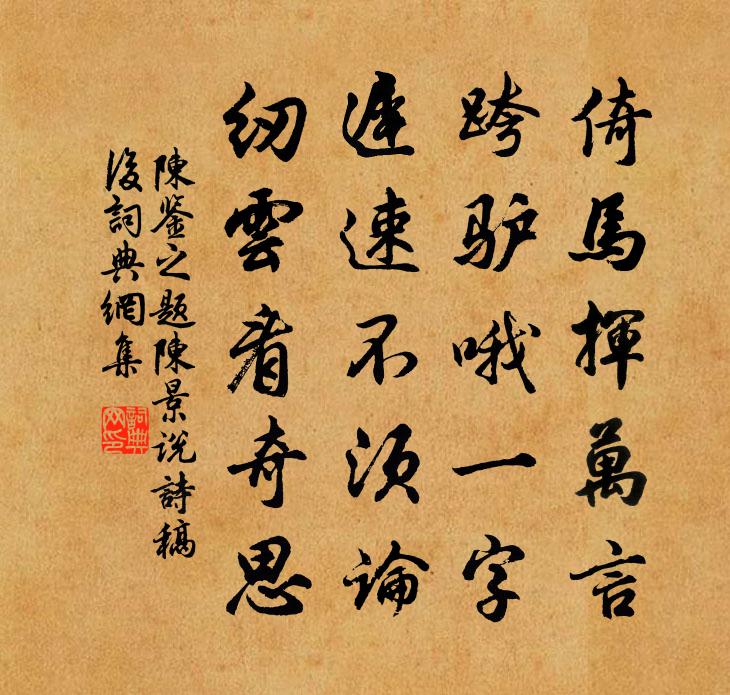 倚馬揮萬言
跨驴哦一字
遲速不須論
纫雲看奇思
陳鉴之題陳景说詩稿
後詞典網集
詞典
网印